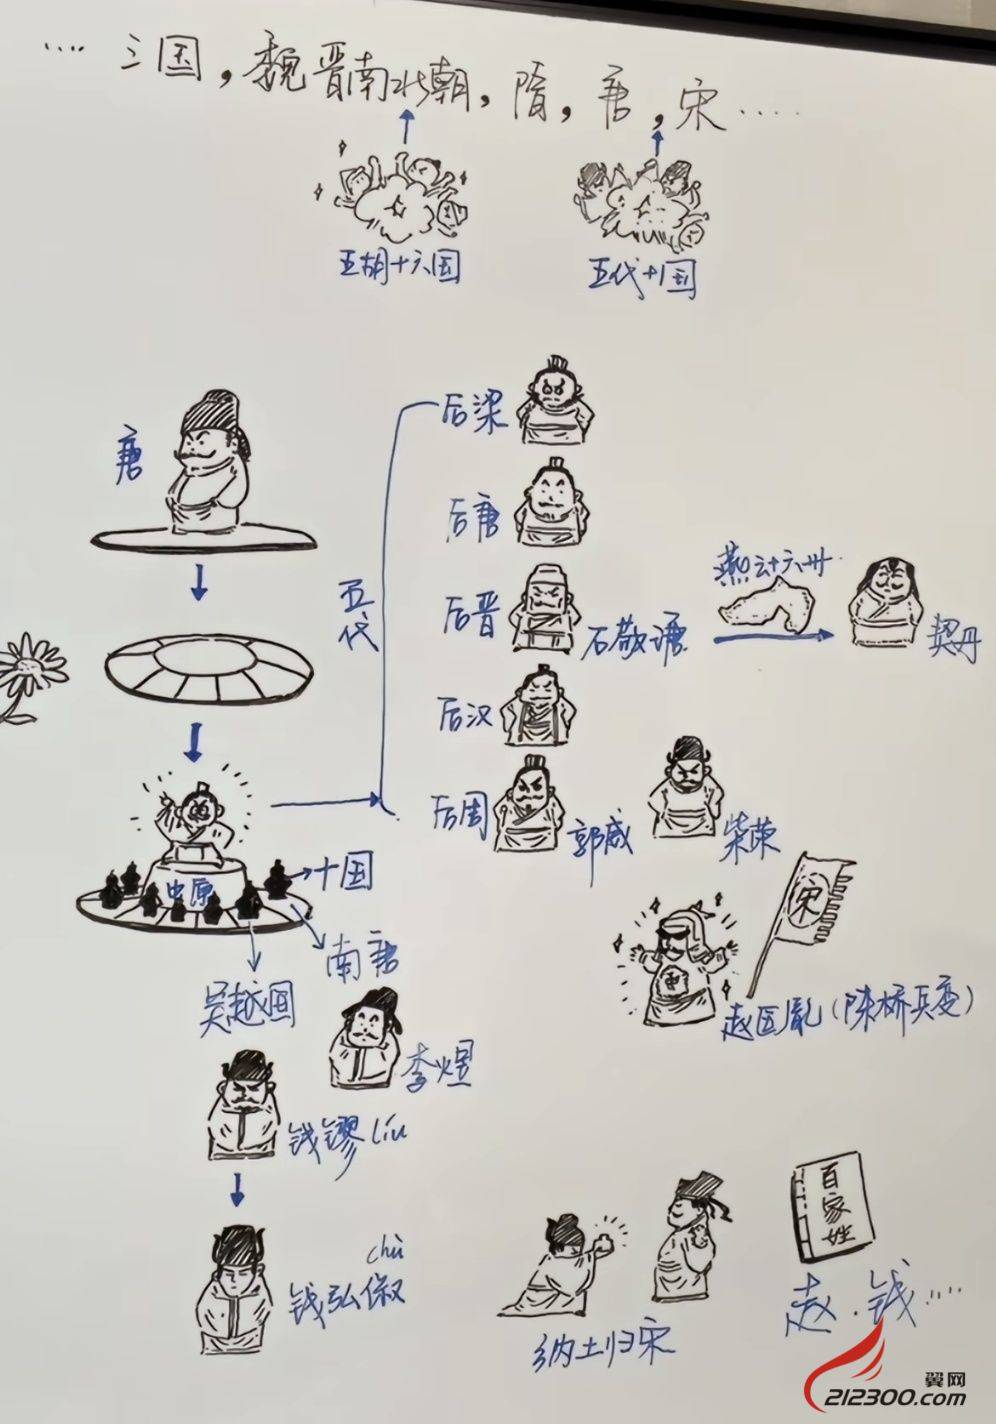 ……三国，魏晋南北朝，隋，唐，宋……
五胡十六国
五代十国
唐
五代
后梁
后唐
后晋
石敬瑭
燕云十六州
契丹
后汉
后周
郭威
柴荣
中原
十国
南唐
吴越国
李煜
宋
赵匡胤（陈桥兵变）
钱镠 liú
chù
钱弘俶
纳土归宋
百家姓
赵.钱……
翼网
212300.com